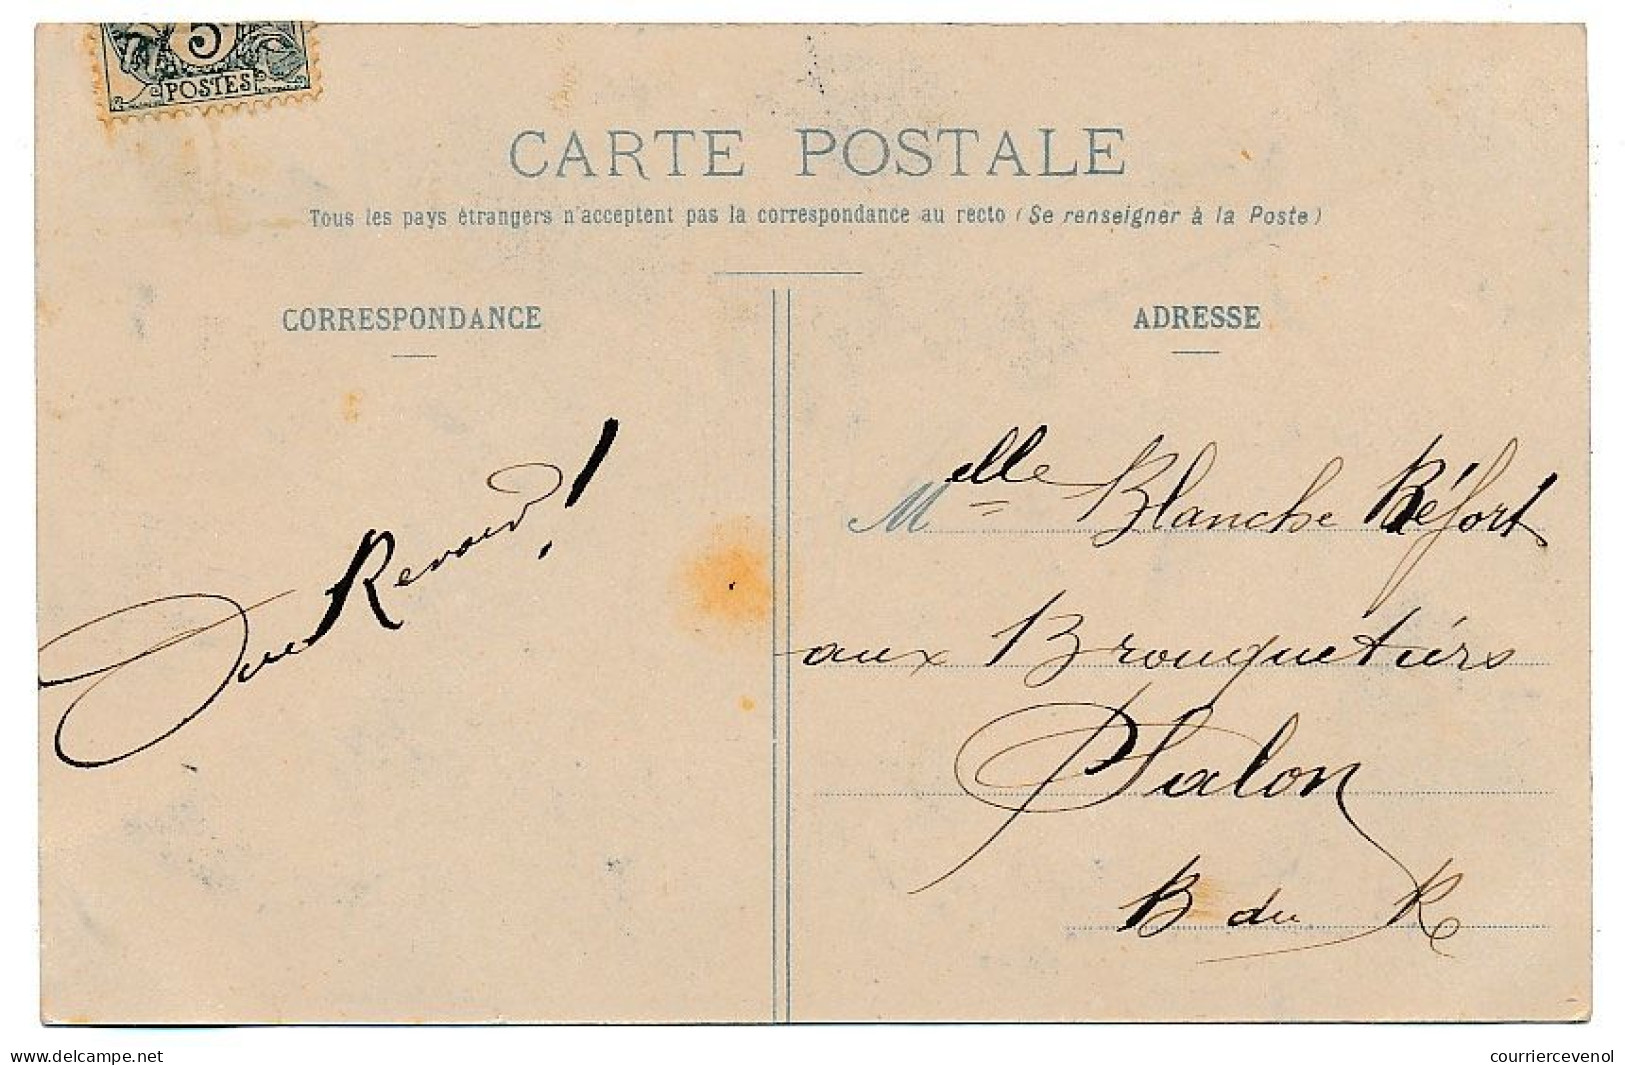 5
POSTES
CARTE POSTALE
Tous les pays étrangers n'acceptent pas la correspondance au recto (Se renseigner à la Poste)
CORRESPONDANCE
ADRESSE
Renard !
Melle Blanche Béfort
aux Brouquetiérs
Salon
B du R
delcampe.net
couriercevenol